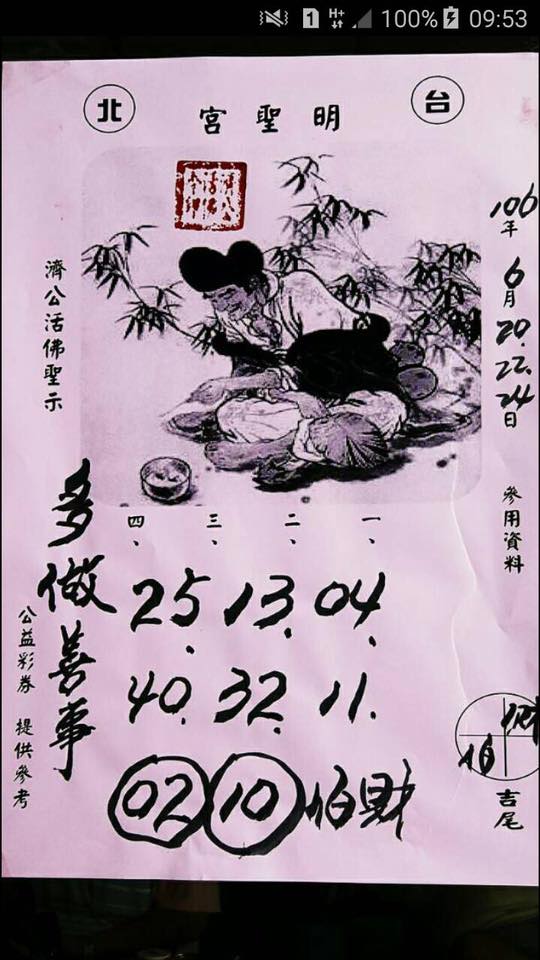 1 H+ 100% 09:53
台北
明聖宮
106年6月20.22.24日
參用資料
吉尾
濟公活佛聖示
一、二、三、四、
04 13 25
11. 32. 40.
02 10 財
多做善事
公益彩券 提供參考